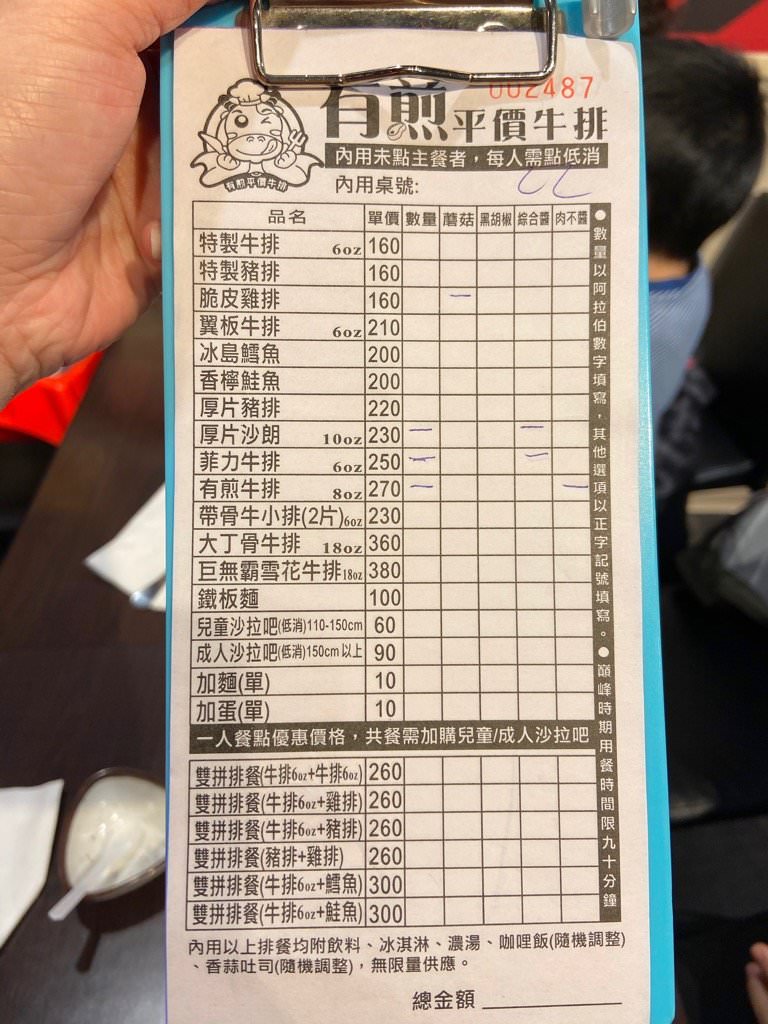 002487
有煎平價牛排
有煎平價牛排
內用未點主餐者，每人需點低消
內用桌號:
品名 單價 數量 蘑菇 黑胡椒 綜合醬 肉不醬
特製牛排 6oz 160
特製豬排 160
脆皮雞排 160 一
翼板牛排 6oz 210
冰島鱈魚 200
香檸鮭魚 200
厚片豬排 220
厚片沙朗 10oz 230 一 一
菲力牛排 6oz 250 一 一
有煎牛排 8oz 270 一 一
帶骨牛小排(2片)6oz 230
大丁骨牛排 18oz 360
巨無霸雪花牛排18oz 380
鐵板麵 100
兒童沙拉吧(低消)110-150cm 60
成人沙拉吧(低消)150cm以上 90
加麵(單) 10
加蛋(單) 10
一人餐點優惠價格，共餐需加購兒童/成人沙拉吧
雙拼排餐(牛排6oz+牛排6oz) 260
雙拼排餐(牛排6oz+雞排) 260
雙拼排餐(牛排6oz+豬排) 260
雙拼排餐(豬排+雞排) 260
雙拼排餐(牛排6oz+鱈魚) 300
雙拼排餐(牛排6oz+鮭魚) 300
●數量以阿拉伯數字填寫，其他選項以正字記號填寫。●巔峰時期用餐時間限九十分鐘
內用以上排餐均附飲料、冰淇淋、濃湯、咖哩飯(隨機調整)
、香蒜吐司(隨機調整)，無限量供應。
總金額